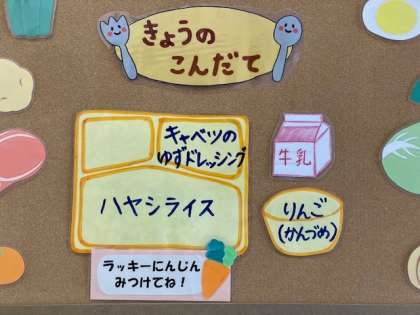 きょうの
こんだて
キャベツの
ゆずドレッシング
牛乳
ハヤシライス
りんご
(かんづめ)
ラッキーにんじん
みつけてね!